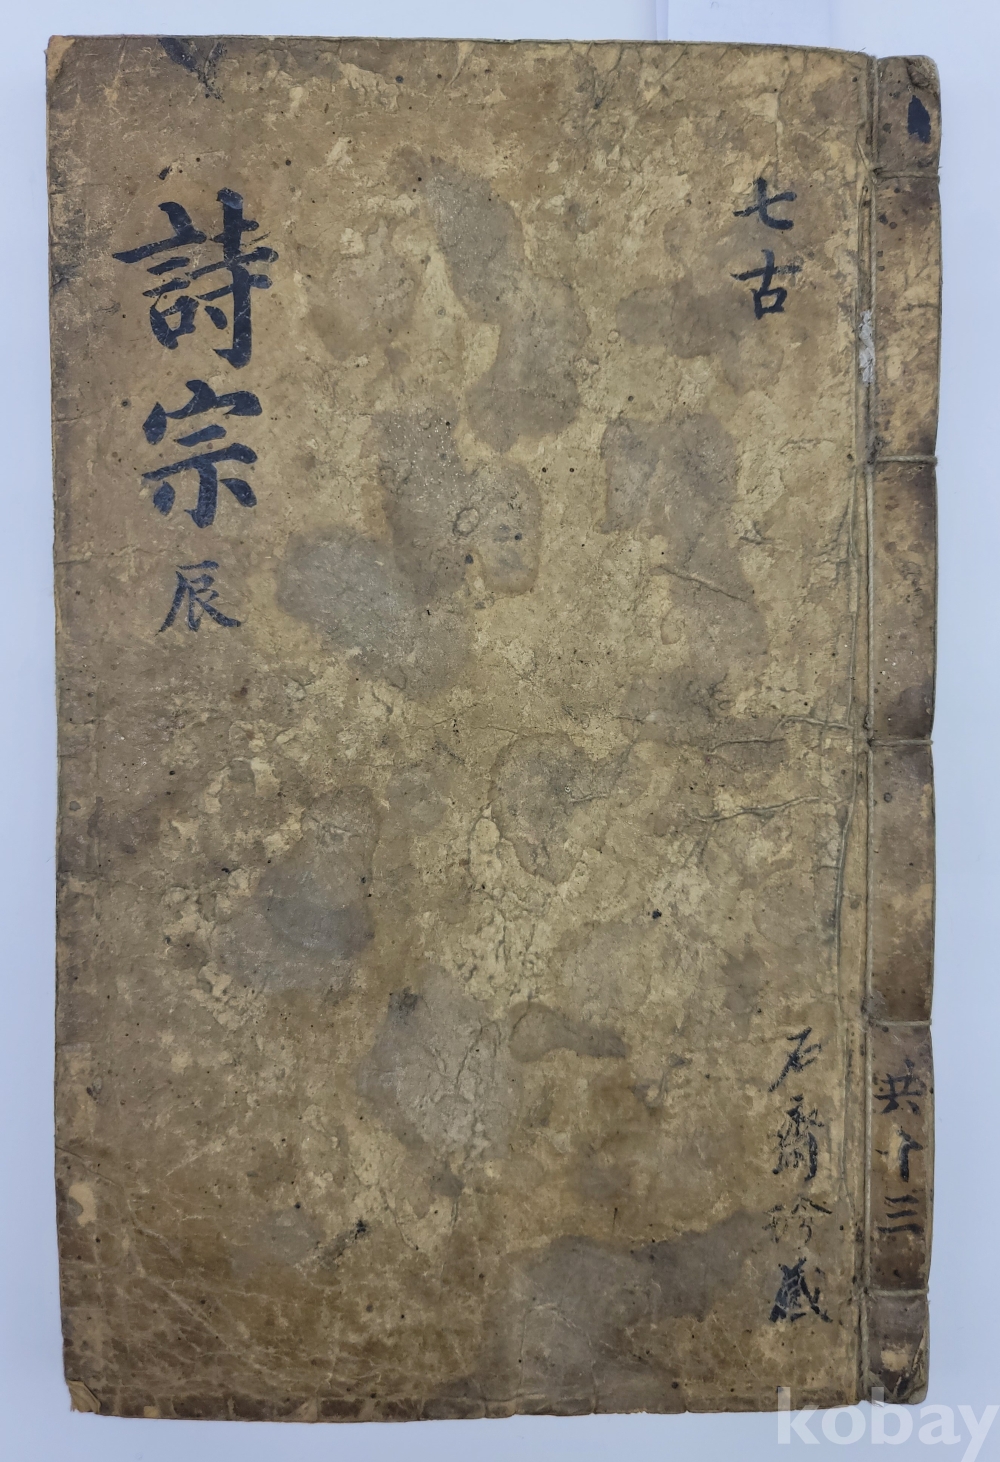 七古
石齋珍藏
共十三
詩宗 辰
kobay